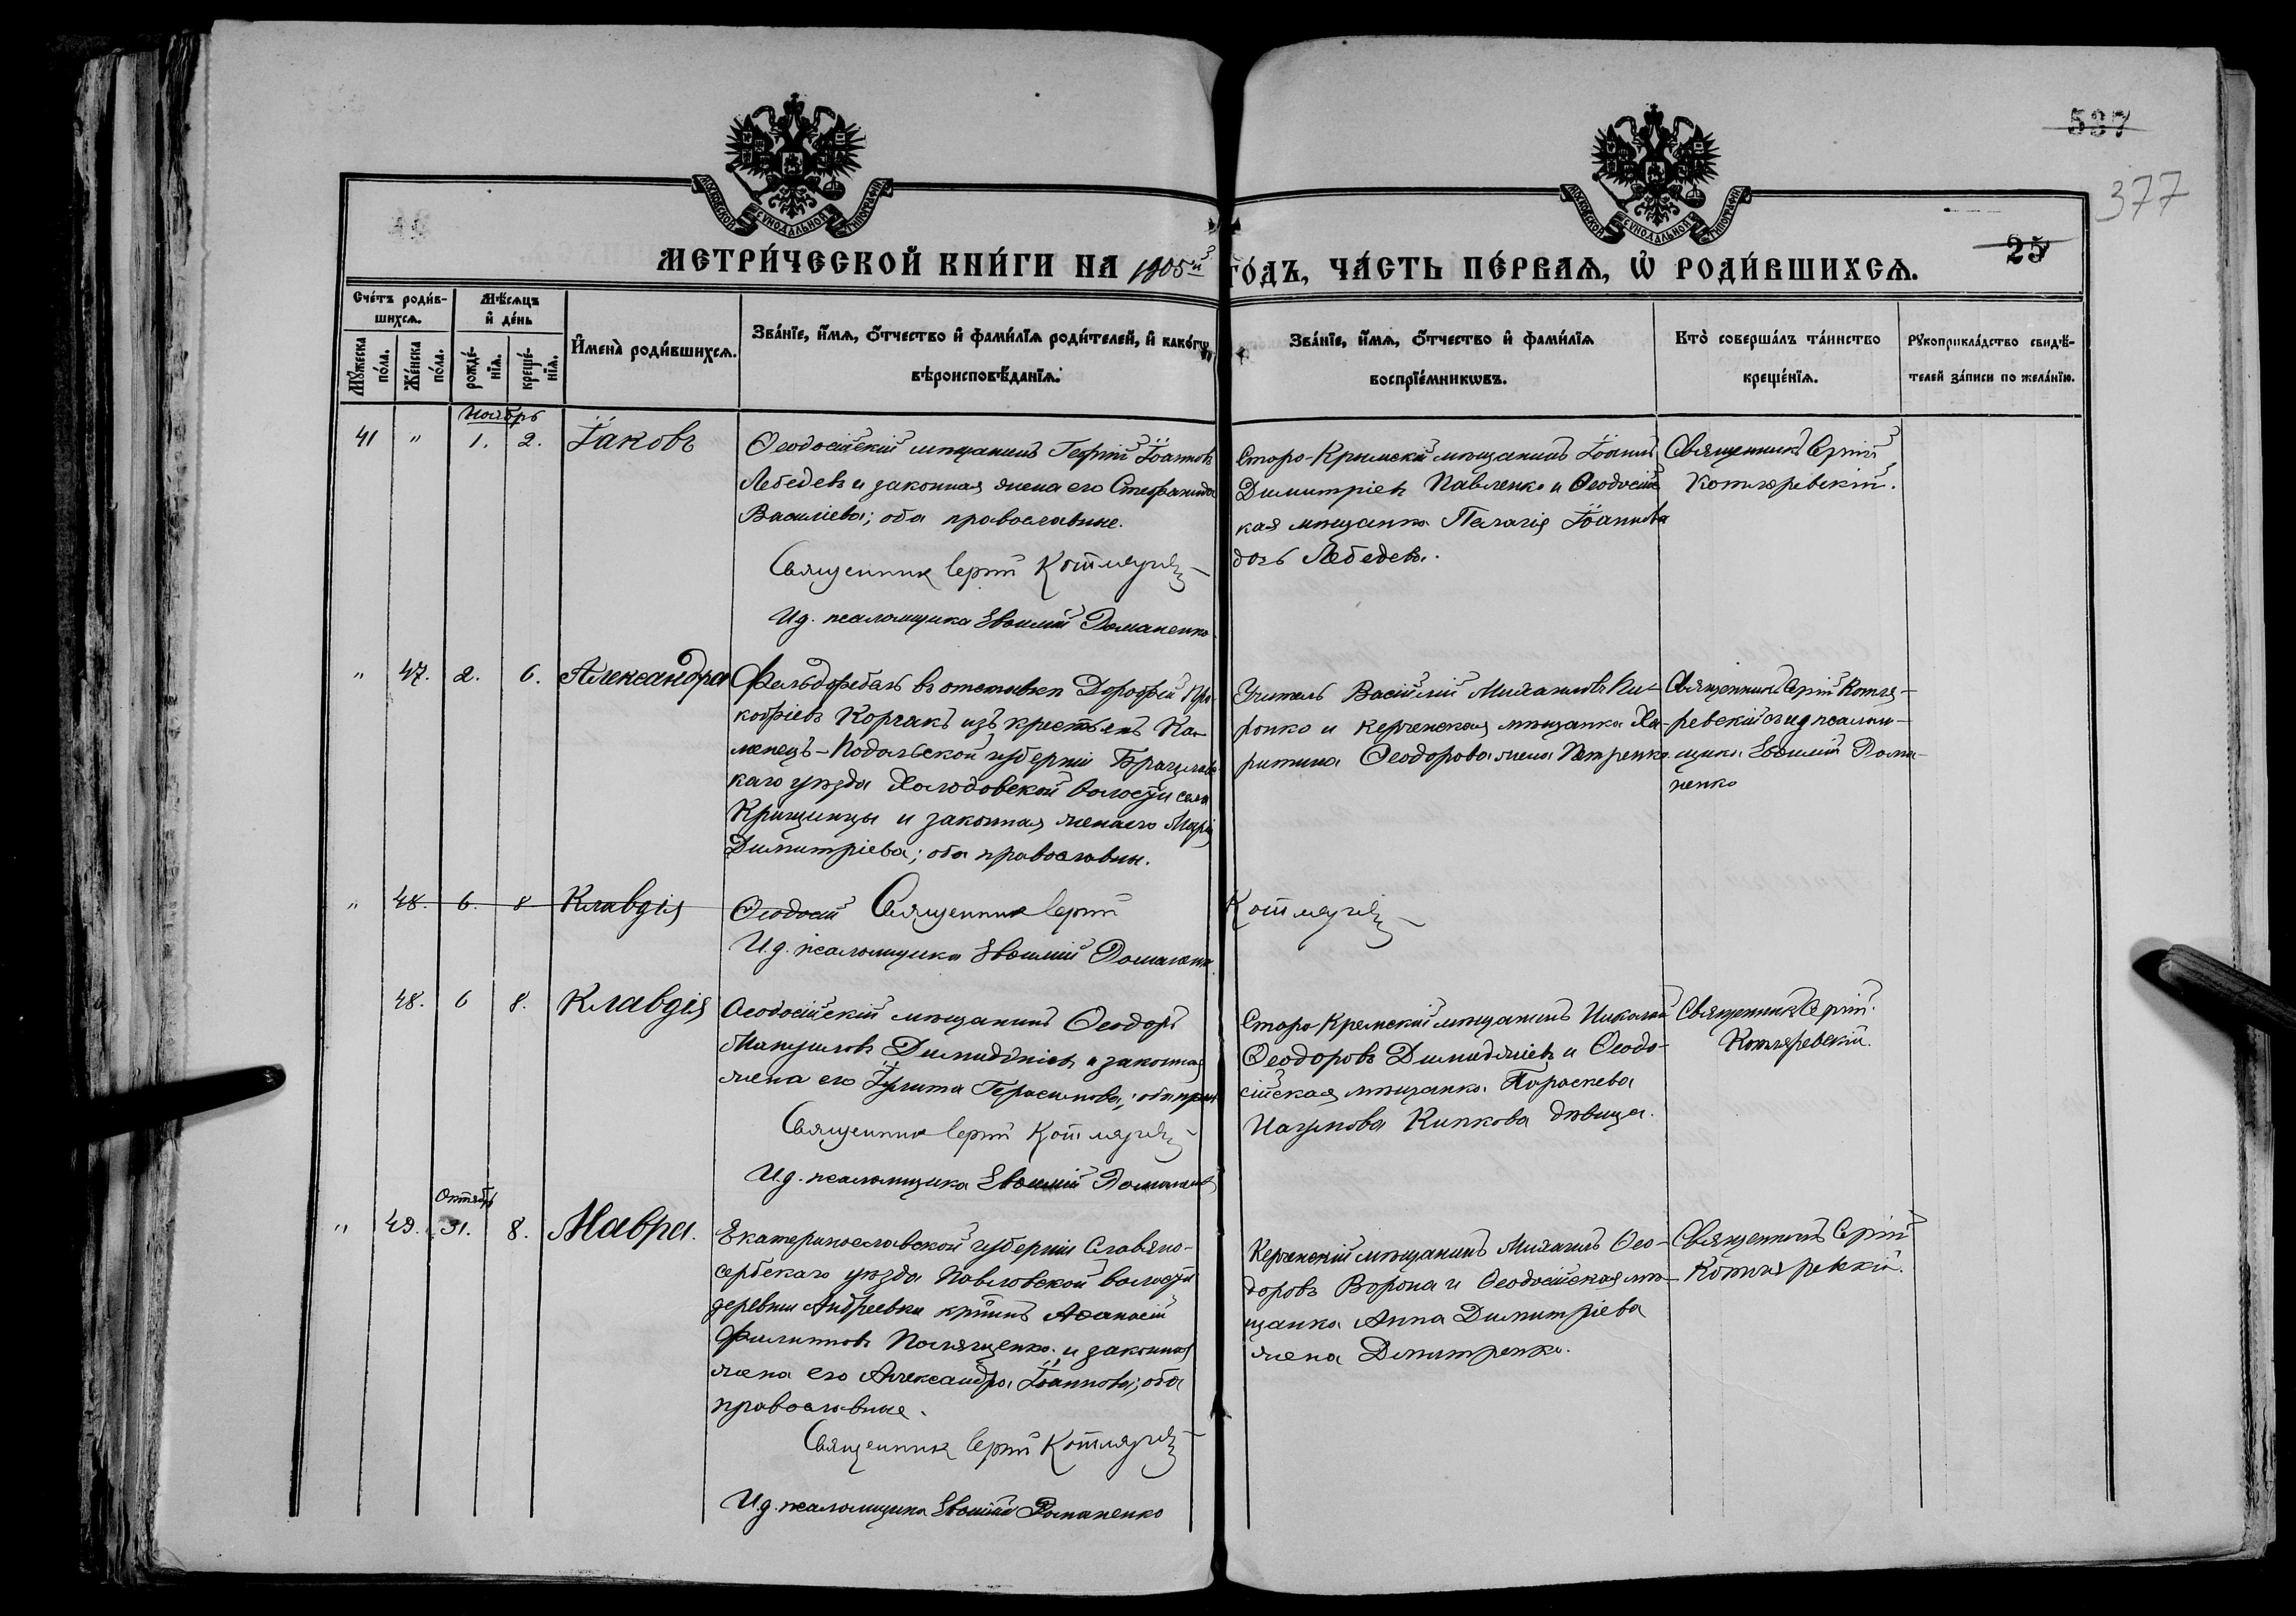 МОСКОВСКОЙ СУНОДАЛЬНОЙ ТИПОГРАФІИ
МОСКОВСКОЙ СУНОДАЛЬНОЙ ТИПОГРАФІИ
537
377
25
МЕТРИ́ЧЕСКОЙ КНИ́ГИ НА 1905й ГО́ДЪ, ЧА́СТЬ ПЕ́РВАѦ, Ѡ҆ РОДИ́ВШИХСѦ.
Сче́тъ роди́вшихсѧ.
Мꙋ́жеска по́ла.
Же́нска по́ла.
Мѣ́сѧцъ и҆ де́нь
рожде́нїѧ.
креще́нїѧ.
И҆мена̀ роди́вшихсѧ.
Зва́нїе, и҆́мѧ, ѻ҆́тчество и҆ фами́лїѧ роди́телей, и҆ како́гѡ
вѣроисповѣ́данїѧ.
Зва́нїе, и҆́мѧ, ѻ҆́тчество и҆ фами́лїѧ
воспрїе́мникѡвъ.
Кто̀ соверша́лъ та́инство
креще́нїѧ.
Рꙋкоприкла́дство свидѣ́телей за́писи по жела́нїю.
Ноябрь
41 " 1. 2. Іаковъ
Ѳеодосійскій мѣщанинъ Георгій Іоанновъ
Лебедевъ и законная жена его Стефанида
Василіева; оба православные.
Священник Сергій Котляревскій
И.д. псаломщика Евѳимій Романенко
Старо-Крымскій мѣщанинъ Іоаннъ
Димитріевъ Павленко и Ѳеодосійс
кая мѣщанка Пелагія Іоаннова
дочь Лебедева.
Священникъ Сергій
Котляревскій.
" 47. 2. 6. Александра
Фельдфебель въ отставкѣ Дорофей Про-
кофіевъ Корчакъ изъ крестьянъ Ка-
менецъ-Подольской губерніи Брацлавс
каго уѣзда Холодовской волости села
Крищинцы и законная жена его Марія
Димитріева; оба православны.
Учитель Василій Михаиловъ
и Керченская мѣщанка Ха-
ритина Ѳеодорова жена Петренко.
Священникъ Сергій Котля-
ревскій и д псалом-
щика Евѳимій Рома-
ненко
" 48. 6. 8 Клавдія
Ѳеодосій Священник Сергій Котляревскій
И.д. псаломщика Евѳимій Романенко
48. 6 8. Клавдія
Ѳеодосійскій мѣщанинъ Ѳеодоръ
Димидзніевъ и законная
жена его Іулита Герасимова; оба прав.
Священник Сергій Котляревскій
И.д. псаломщика Евѳимій Романенко
Старо-Крымскій мѣщанинъ Николай
Ѳеодоровъ и Ѳеодо-
сійская мѣщанка Параскева
Наумова Кипкова дѣвица.
Священникъ Сергій
Котляревскій.
Октябрь
" 49. 31. 8. Мавра.
Екатеринославской губерніи Славяно-
сербскаго уѣзда Павловской волости
деревни Андреевки крт҃нинъ Аѳанасій
Филипповъ Полященко и законная
жена его Александра Іоаннова; оба
православные.
Священник Сергій Котляревскій
И.д. псаломщика Евѳимій Романенко
Керченскій мѣщанинъ Михаилъ Ѳео-
доровъ Ворона и Ѳеодосійская мѣ-
щанка Анна Димитріева
жена Дмитренко.
Священникъ Сергій
Котляревскій.